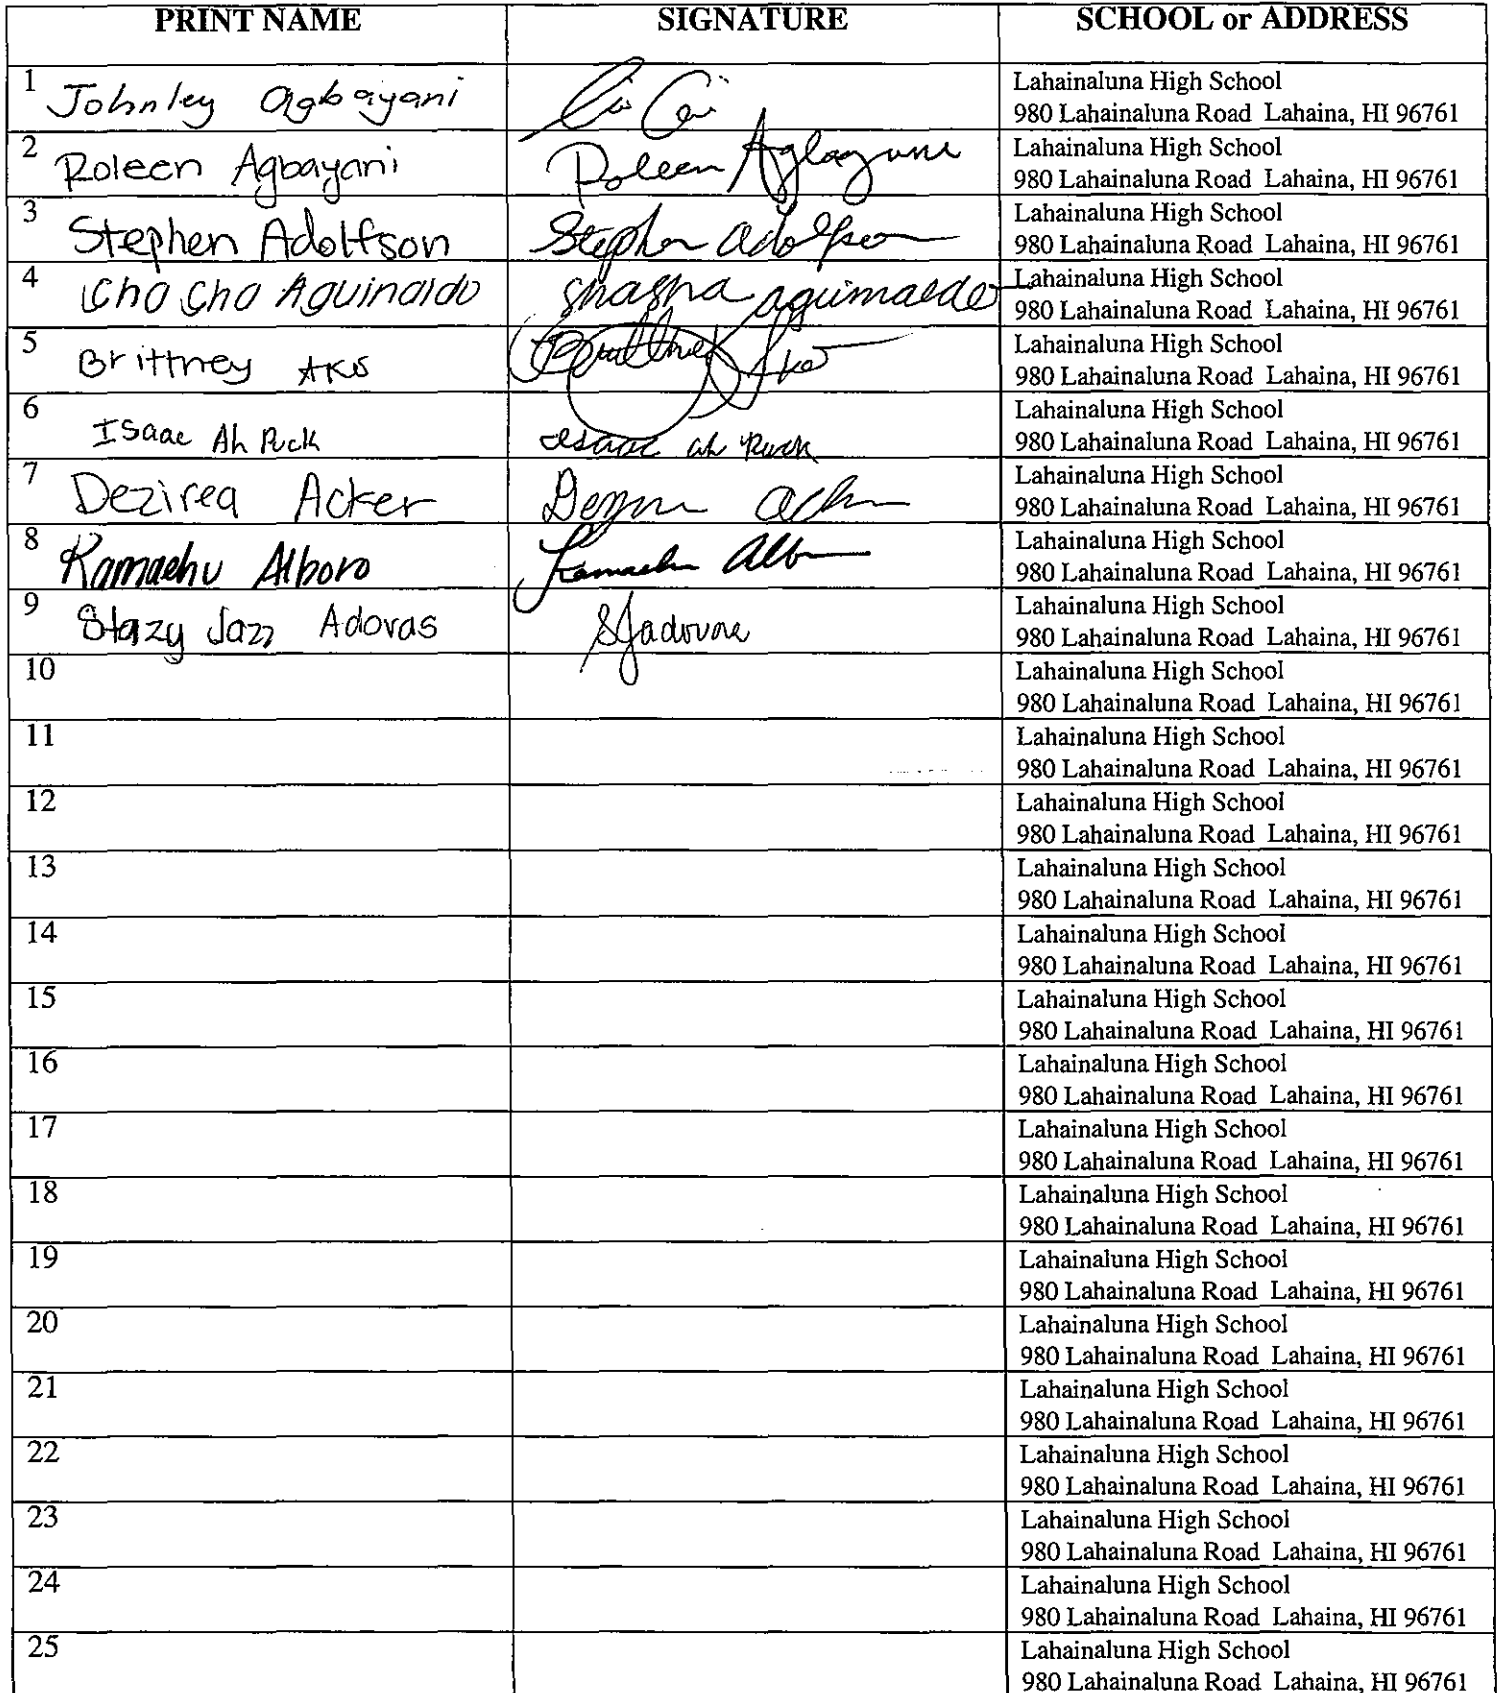 PRINT NAME SIGNATURE SCHOOL or ADDRESS
1 Johnley Agbayani Lahainaluna High School
980 Lahainaluna Road Lahaina, HI 96761
2 Roleen Agbayani Roleen Agbayani Lahainaluna High School
980 Lahainaluna Road Lahaina, HI 96761
3 Stephen Adolfson Stephen Adolfson Lahainaluna High School
980 Lahainaluna Road Lahaina, HI 96761
4 Cha Cha Aguinaldo shasha aguinaldo Lahainaluna High School
980 Lahainaluna Road Lahaina, HI 96761
5 Brittney Ako Brittney Ako Lahainaluna High School
980 Lahainaluna Road Lahaina, HI 96761
6 Isaac Ah Puck isaac ah Puck Lahainaluna High School
980 Lahainaluna Road Lahaina, HI 96761
7 Dezirea Acker Lahainaluna High School
980 Lahainaluna Road Lahaina, HI 96761
8 Kamaehu Alboro Kamaehu Lahainaluna High School
980 Lahainaluna Road Lahaina, HI 96761
9 Stazy Jazz Adovas Lahainaluna High School
980 Lahainaluna Road Lahaina, HI 96761
10 Lahainaluna High School
980 Lahainaluna Road Lahaina, HI 96761
11 Lahainaluna High School
980 Lahainaluna Road Lahaina, HI 96761
12 Lahainaluna High School
980 Lahainaluna Road Lahaina, HI 96761
13 Lahainaluna High School
980 Lahainaluna Road Lahaina, HI 96761
14 Lahainaluna High School
980 Lahainaluna Road Lahaina, HI 96761
15 Lahainaluna High School
980 Lahainaluna Road Lahaina, HI 96761
16 Lahainaluna High School
980 Lahainaluna Road Lahaina, HI 96761
17 Lahainaluna High School
980 Lahainaluna Road Lahaina, HI 96761
18 Lahainaluna High School
980 Lahainaluna Road Lahaina, HI 96761
19 Lahainaluna High School
980 Lahainaluna Road Lahaina, HI 96761
20 Lahainaluna High School
980 Lahainaluna Road Lahaina, HI 96761
21 Lahainaluna High School
980 Lahainaluna Road Lahaina, HI 96761
22 Lahainaluna High School
980 Lahainaluna Road Lahaina, HI 96761
23 Lahainaluna High School
980 Lahainaluna Road Lahaina, HI 96761
24 Lahainaluna High School
980 Lahainaluna Road Lahaina, HI 96761
25 Lahainaluna High School
980 Lahainaluna Road Lahaina, HI 96761